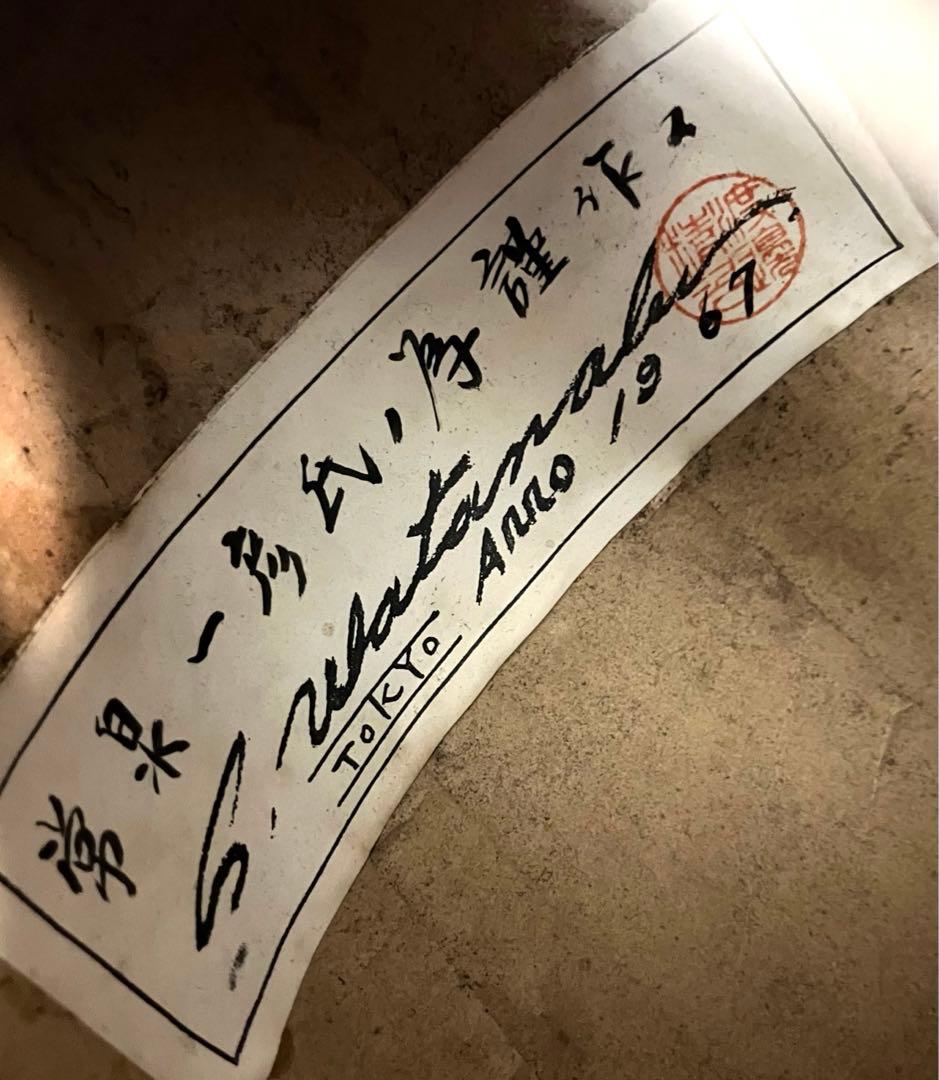 常泉一彦氏ノ為謹作ス
S. Watanabe
TOKYO ANNO 1967